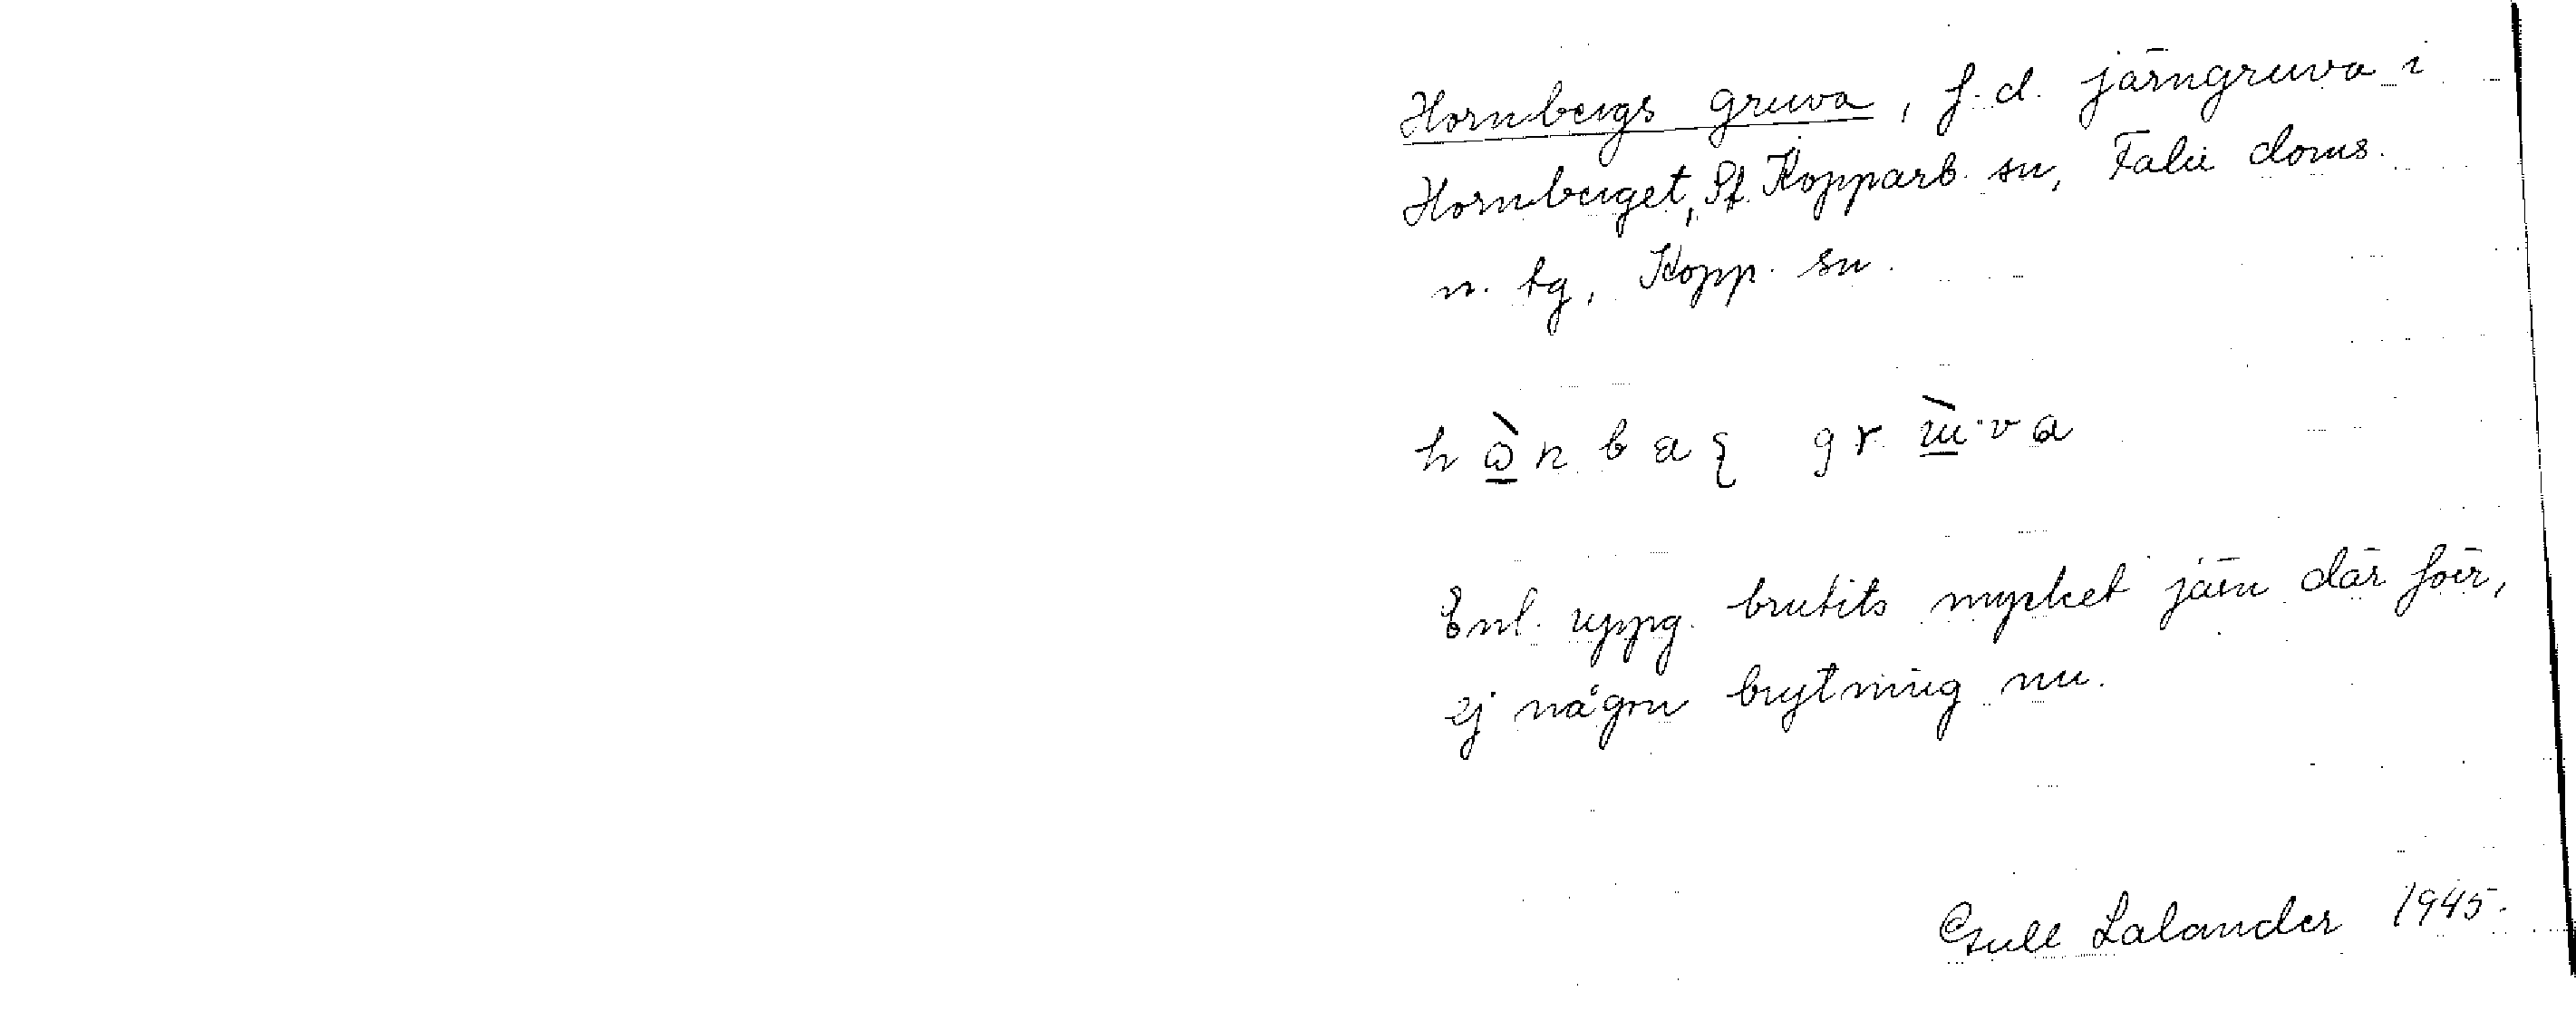 Hornbergs gruva, f.d. järngruva i
Hornberget, St. Kopparb. sn, Falu doms.
n. tg, Kopp. sn.
Enl. uppg. brutits mycket järn där förr,
ej någon brytning nu.
Gull Lalander 1945.